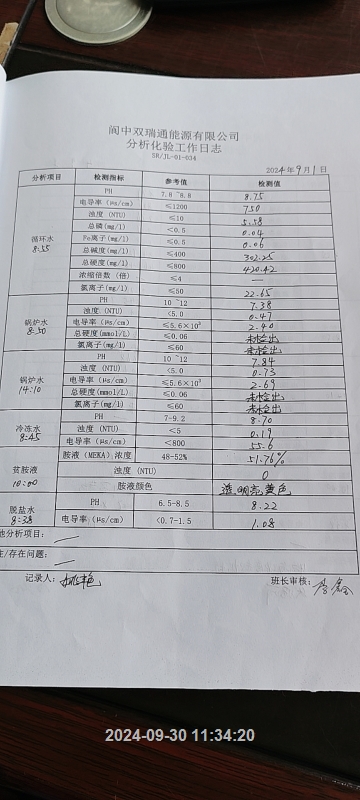 阆中双瑞通能源有限公司
分析化验工作日志
SR/JL-01-034
2024年9月1日
分析项目 检测指标 参考值 检测值
循环水 8:55
PH 7.8~8.8 8.75
电导率（μs/cm） ≤1200 750
浊度（NTU） ≤10 5.58
总磷(mg/l) <0.5 0.04
Fe离子(mg/l) ≤0.5 0.06
总碱度(mg/l) ≤400 302.25
总硬度(mg/l) ≤800 420.42
浓缩倍数（倍） ≤4 —
氯离子(mg/l) ≤50 22.65
锅炉水 8:50
PH 10~12 7.38
浊度（NTU） <5.0 0.47
电导率（μs/cm） ≤5.6×10³ 2.40
总硬度(mmol/L) ≤0.06 未检出
氯离子(mg/l) ≤60 未检出
锅炉水 14:10
PH 10~12 7.84
浊度（NTU） <5.0 0.73
电导率（μs/cm） ≤5.6×10³ 2.69
总硬度(mmol/L) ≤0.06 未检出
氯离子(mg/l) ≤60 未检出
冷冻水 8:45
PH 7-9.2 8.70
浊度（NTU） <5 0.19
电导率（μs/cm） <800 55.6
贫胺液 10:00
胺液（MEKA）浓度 48-52% 51.76%
浊度（NTU） 0
胺液颜色 透明亮黄色
脱盐水 8:38
PH 6.5-8.5 8.22
电导率（μs/cm） <0.7-1.5 1.08
他分析项目： —
生/存在问题： —
记录人： 班长审核：
2024-09-30 11:34:20